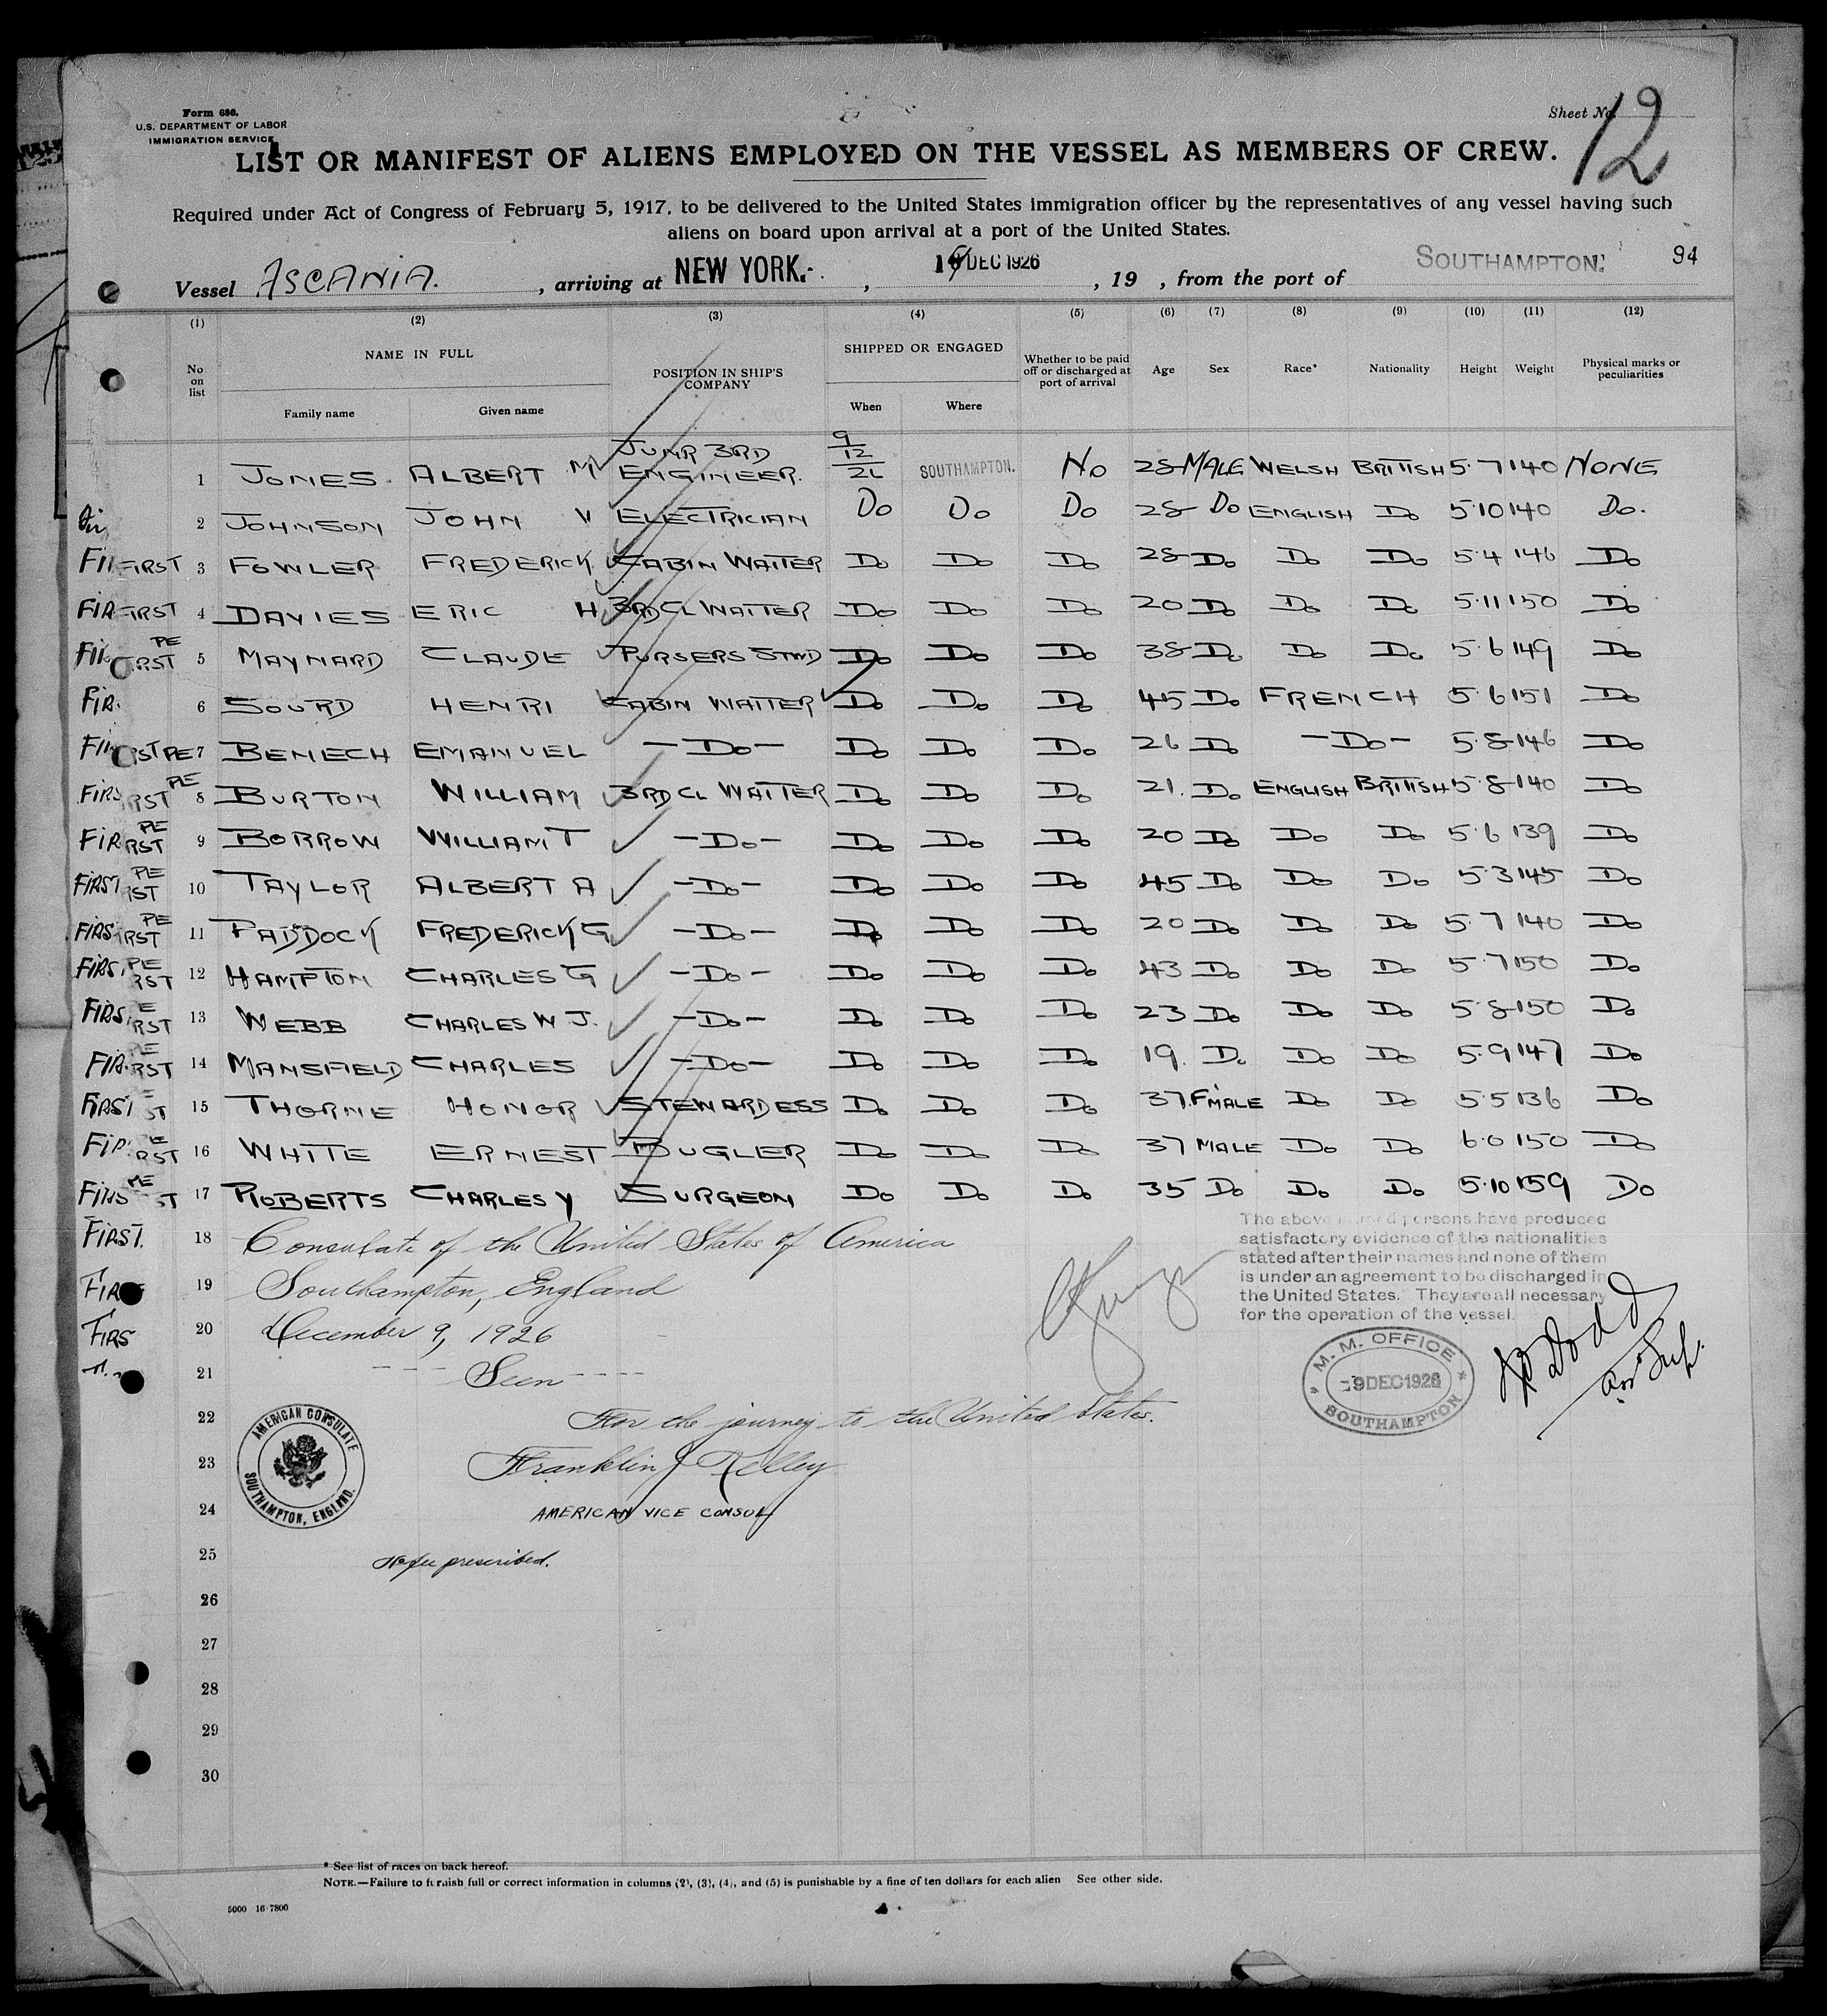 Form 680.
U.S. DEPARTMENT OF LABOR
IMMIGRATION SERVICE
Sheet No. 12
LIST OR MANIFEST OF ALIENS EMPLOYED ON THE VESSEL AS MEMBERS OF CREW.
Required under Act of Congress of February 5, 1917, to be delivered to the United States immigration officer by the representatives of any vessel having such
aliens on board upon arrival at a port of the United States.
Vessel ASCANIA. , arriving at NEW YORK. , DEC 1926 , 19 , from the port of SOUTHAMPTON. 94
(1) (2) (3) (4) (5) (6) (7) (8) (9) (10) (11) (12)
No on list NAME IN FULL Family name Given name POSITION IN SHIP'S COMPANY SHIPPED OR ENGAGED When Where Whether to be paid off or discharged at port of arrival Age Sex Race* Nationality Height Weight Physical marks or peculiarities
1 JONES ALBERT M JUNR 3RD ENGINEER. 9/12/26 SOUTHAMPTON. NO 28 MALE WELSH BRITISH 5.7 140 NONE
2 JOHNSON JOHN V ELECTRICIAN DO DO DO 28 DO ENGLISH DO 5.10 140 DO.
FIRST 3 FOWLER FREDERICK CABIN WAITER DO DO DO 28 DO DO DO 5.4 146 DO
FIRST 4 DAVIES ERIC H 3RD CL WAITER DO DO DO 20 DO DO DO 5.11 150 DO
5 MAYNARD CLAUDE PURSERS STWD DO DO DO 38 DO DO DO 5.6 149 DO
6 SOURD HENRI CABIN WAITER DO DO DO 45 DO FRENCH 5.6 151 DO
7 BENECH EMANUEL -DO- DO DO DO 26 DO -DO- 5.8 146 DO
8 BURTON WILLIAM 3RD CL WAITER DO DO DO 21. DO ENGLISH BRITISH 5.8 140 DO
9 BORROW WILLIAM T -DO- DO DO DO 20 DO DO DO 5.6 139 DO
FIRST 10 TAYLOR ALBERT A -DO- DO DO DO 45 DO DO DO 5.3 145 DO
11 PADDOCK FREDERICK G -DO- DO DO DO 20 DO DO DO 5.7 140 DO
12 HAMPTON CHARLES G -DO- DO DO DO 43 DO DO DO 5.7 150 DO
13 WEBB CHARLES W J. -DO- DO DO DO 23 DO DO DO 5.8 150 DO
14 MANSFIELD CHARLES -DO- DO DO DO 19. DO DO DO 5.9 147 DO
FIRST 15 THORNE HONOR STEWARDESS DO DO DO 37. FMALE DO DO 5.5 136 DO
16 WHITE ERNEST BUGLER DO DO DO 37 MALE DO DO 6.0 150 DO
17 ROBERTS CHARLES Y SURGEON DO DO DO 35 DO DO DO 5.10 159 DO
FIRST. 18 Consulate of the United States of America
19 Southampton, England
20 December 9, 1926
21 Seen
22 For the journey to the United States.
23 Franklin J Kelley
24 AMERICAN VICE CONSUL
25 No fee prescribed.
26
27
28
29
30
The above named persons have produced
satisfactory evidence of the nationalities
stated after their names and none of them
is under an agreement to be discharged in
the United States. They are all necessary
for the operation of the vessel.
M. M. OFFICE
-9 DEC 1926
SOUTHAMPTON
AMERICAN CONSULATE
SOUTHAMPTON, ENGLAND.
* See list of races on back hereof.
NOTE.—Failure to furnish full or correct information in columns (2), (3), (4), and (5) is punishable by a fine of ten dollars for each alien See other side.
5000 16-7800